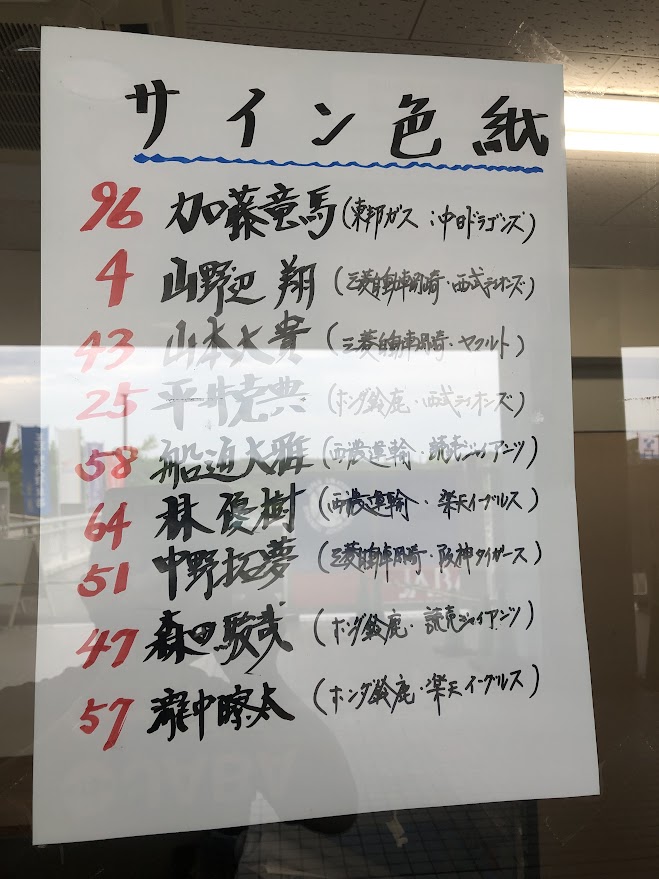 サイン色紙
96 加藤竜馬 (東邦ガス:中日ドラゴンズ)
4 山野辺 翔 (三菱自動車岡崎・西武ライオンズ)
43 山本大貴 (三菱自動車岡崎・ヤクルト)
25 平井克典 (ホンダ鈴鹿・西武ライオンズ)
58 船迫大雅 (西濃運輸・読売ジャイアンツ)
64 林優樹 (西濃運輸・楽天イーグルス)
51 中野拓夢 (三菱自動車岡崎・阪神タイガース)
47 森田駿哉 (ホンダ鈴鹿・読売ジャイアンツ)
57 瀧中瞭太 (ホンダ鈴鹿・楽天イーグルス)